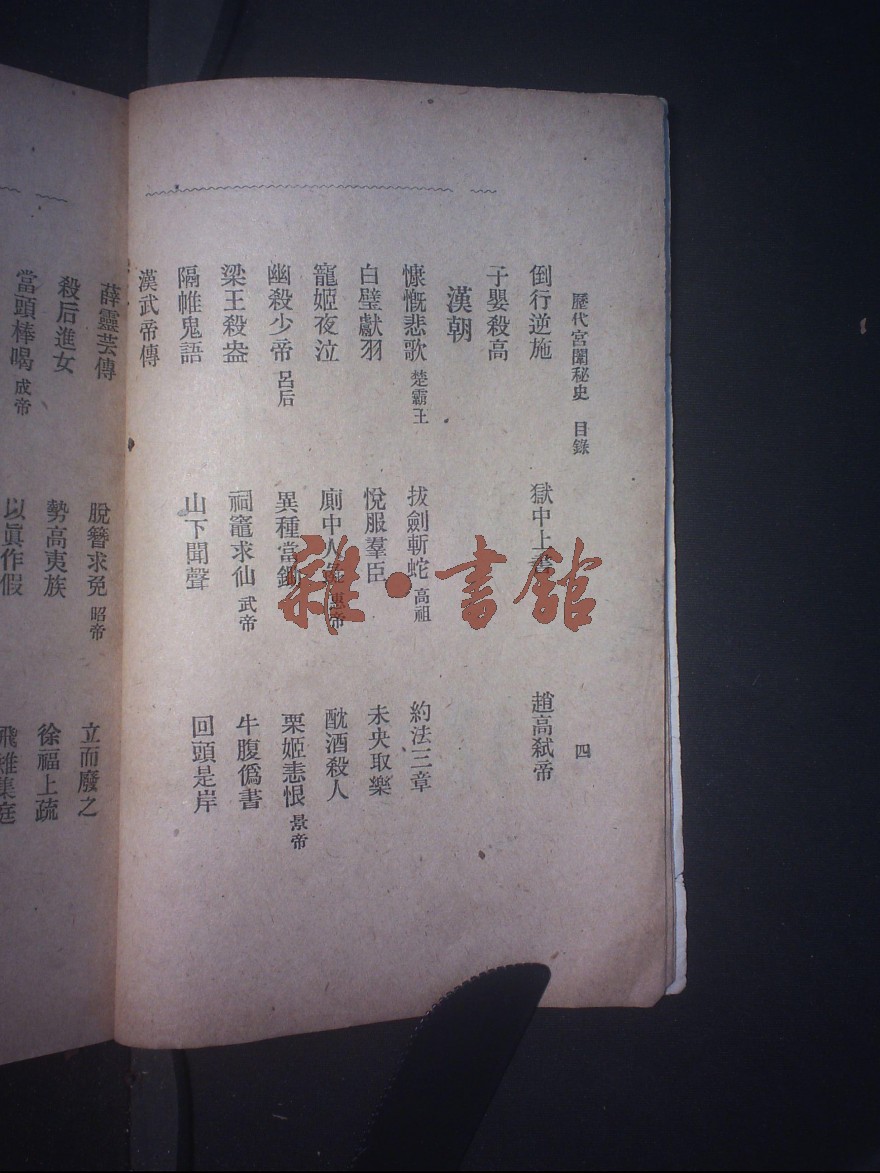 歷代宮闈秘史　目錄　四
倒行逆施　獄中上書　趙高弒帝
子嬰殺高
漢朝
慷慨悲歌 楚霸王　拔劍斬蛇 高祖　約法三章
白璧獻羽　悅服羣臣　未央取樂
寵姬夜泣　廁中人彘 惠帝　酖酒殺人
幽殺少帝 呂后　異種當鋤　栗姬恚恨 景帝
梁王殺盎　祠竈求仙 武帝　牛腹僞書
隔帷鬼語　山下聞聲　回頭是岸
漢武帝傳
薛靈芸傳　脫簪求免 昭帝　立而廢之
殺后進女　勢高夷族　徐福上疏
當頭棒喝 成帝　以眞作假　飛雉集庭
雜·書館